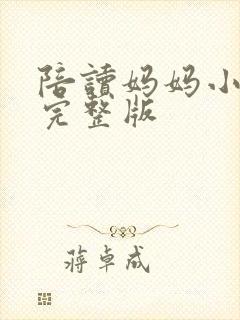 陪讀妈妈小
完整版
蒋卓成